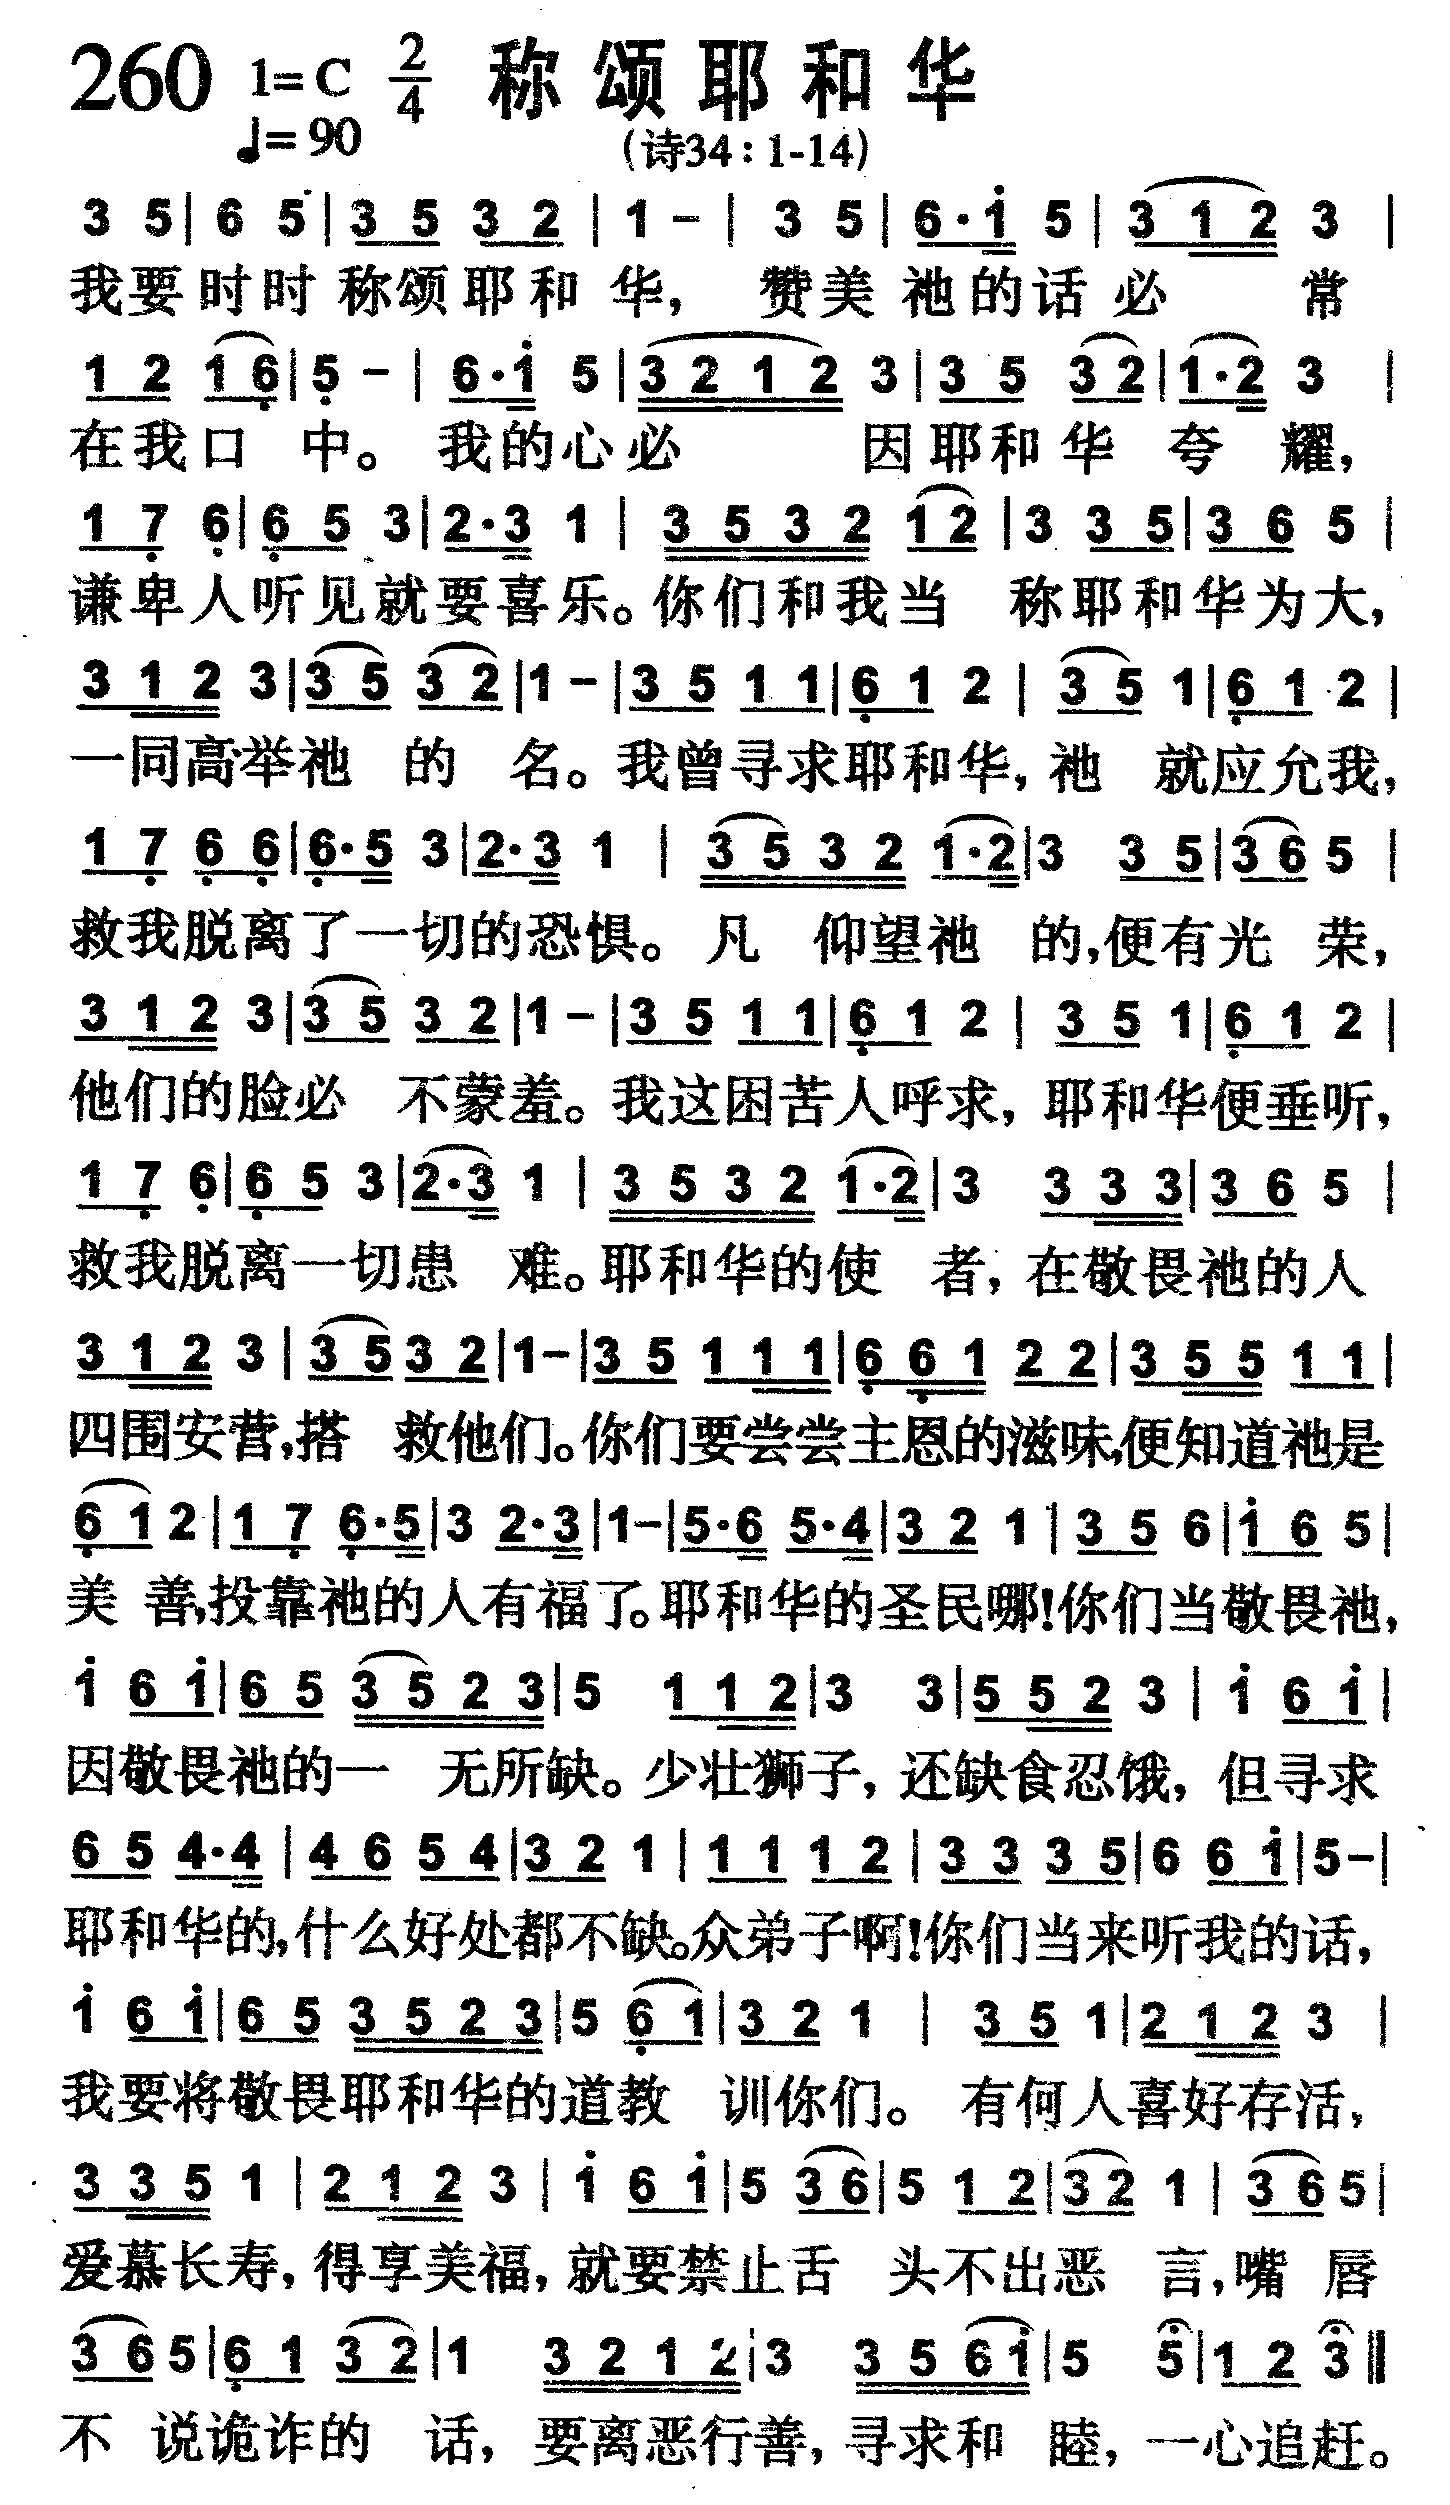 260 1=C 2/4 称颂耶和华
♩=90 (诗34:1-14)
3 5 | 6 5 | 3 5 3 2 | 1 - | 3 5 | 6·i 5 | 3 1 2 3 |
我要时时称颂耶和华，赞美祂的话必常
1 2 1 6 | 5 - | 6·i 5 | 3 2 1 2 3 | 3 5 3 2 | 1·2 3 |
在我口中。我的心必因耶和华夸耀，
1 7 6 | 6 5 3 | 2·3 1 | 3 5 3 2 1 2 | 3 3 5 | 3 6 5 |
谦卑人听见就要喜乐。你们和我当称耶和华为大，
3 1 2 3 | 3 5 3 2 | 1 - | 3 5 1 1 | 6 1 2 | 3 5 1 | 6 1 2 |
一同高举祂的名。我曾寻求耶和华，祂就应允我，
1 7 6 6 | 6·5 3 | 2·3 1 | 3 5 3 2 1·2 | 3 3 5 | 3 6 5 |
救我脱离了一切的恐惧。凡仰望祂的，便有光荣，
3 1 2 3 | 3 5 3 2 | 1 - | 3 5 1 1 | 6 1 2 | 3 5 1 | 6 1 2 |
他们的脸必不蒙羞。我这困苦人呼求，耶和华便垂听，
1 7 6 | 6 5 3 | 2·3 1 | 3 5 3 2 1·2 | 3 3 3 3 | 3 6 5 |
救我脱离一切患难。耶和华的使者，在敬畏祂的人
3 1 2 3 | 3 5 3 2 | 1 - | 3 5 1 1 1 | 6 6 1 2 2 | 3 5 5 1 1 |
四围安营，搭救他们。你们要尝尝主恩的滋味，便知道祂是
6 1 2 | 1 7 6·5 | 3 2·3 | 1 - | 5·6 5·4 | 3 2 1 | 3 5 6 | i 6 5 |
美善，投靠祂的人有福了。耶和华的圣民哪！你们当敬畏祂，
i 6 i | 6 5 3 5 2 3 | 5 1 1 2 | 3 3 | 5 5 2 3 | i 6 i |
因敬畏祂的一无所缺。少壮狮子，还缺食忍饿，但寻求
6 5 4·4 | 4 6 5 4 | 3 2 1 | 1 1 1 2 | 3 3 3 5 | 6 6 i | 5 - |
耶和华的，什么好处都不缺。众弟子啊！你们当来听我的话，
i 6 i | 6 5 3 5 2 3 | 5 6 1 | 3 2 1 | 3 5 1 | 2 1 2 3 |
我要将敬畏耶和华的道教训你们。有何人喜好存活，
3 3 5 1 | 2 1 2 3 | i 6 i | 5 3 6 | 5 1 2 | 3 2 1 | 3 6 5 |
爱慕长寿，得享美福，就要禁止舌头不出恶言，嘴唇
3 6 5 | 6 1 3 2 | 1 3 2 1 2 | 3 3 5 6 i | 5 5 | 1 2 3 ‖
不说诡诈的话，要离恶行善，寻求和睦，一心追赶。